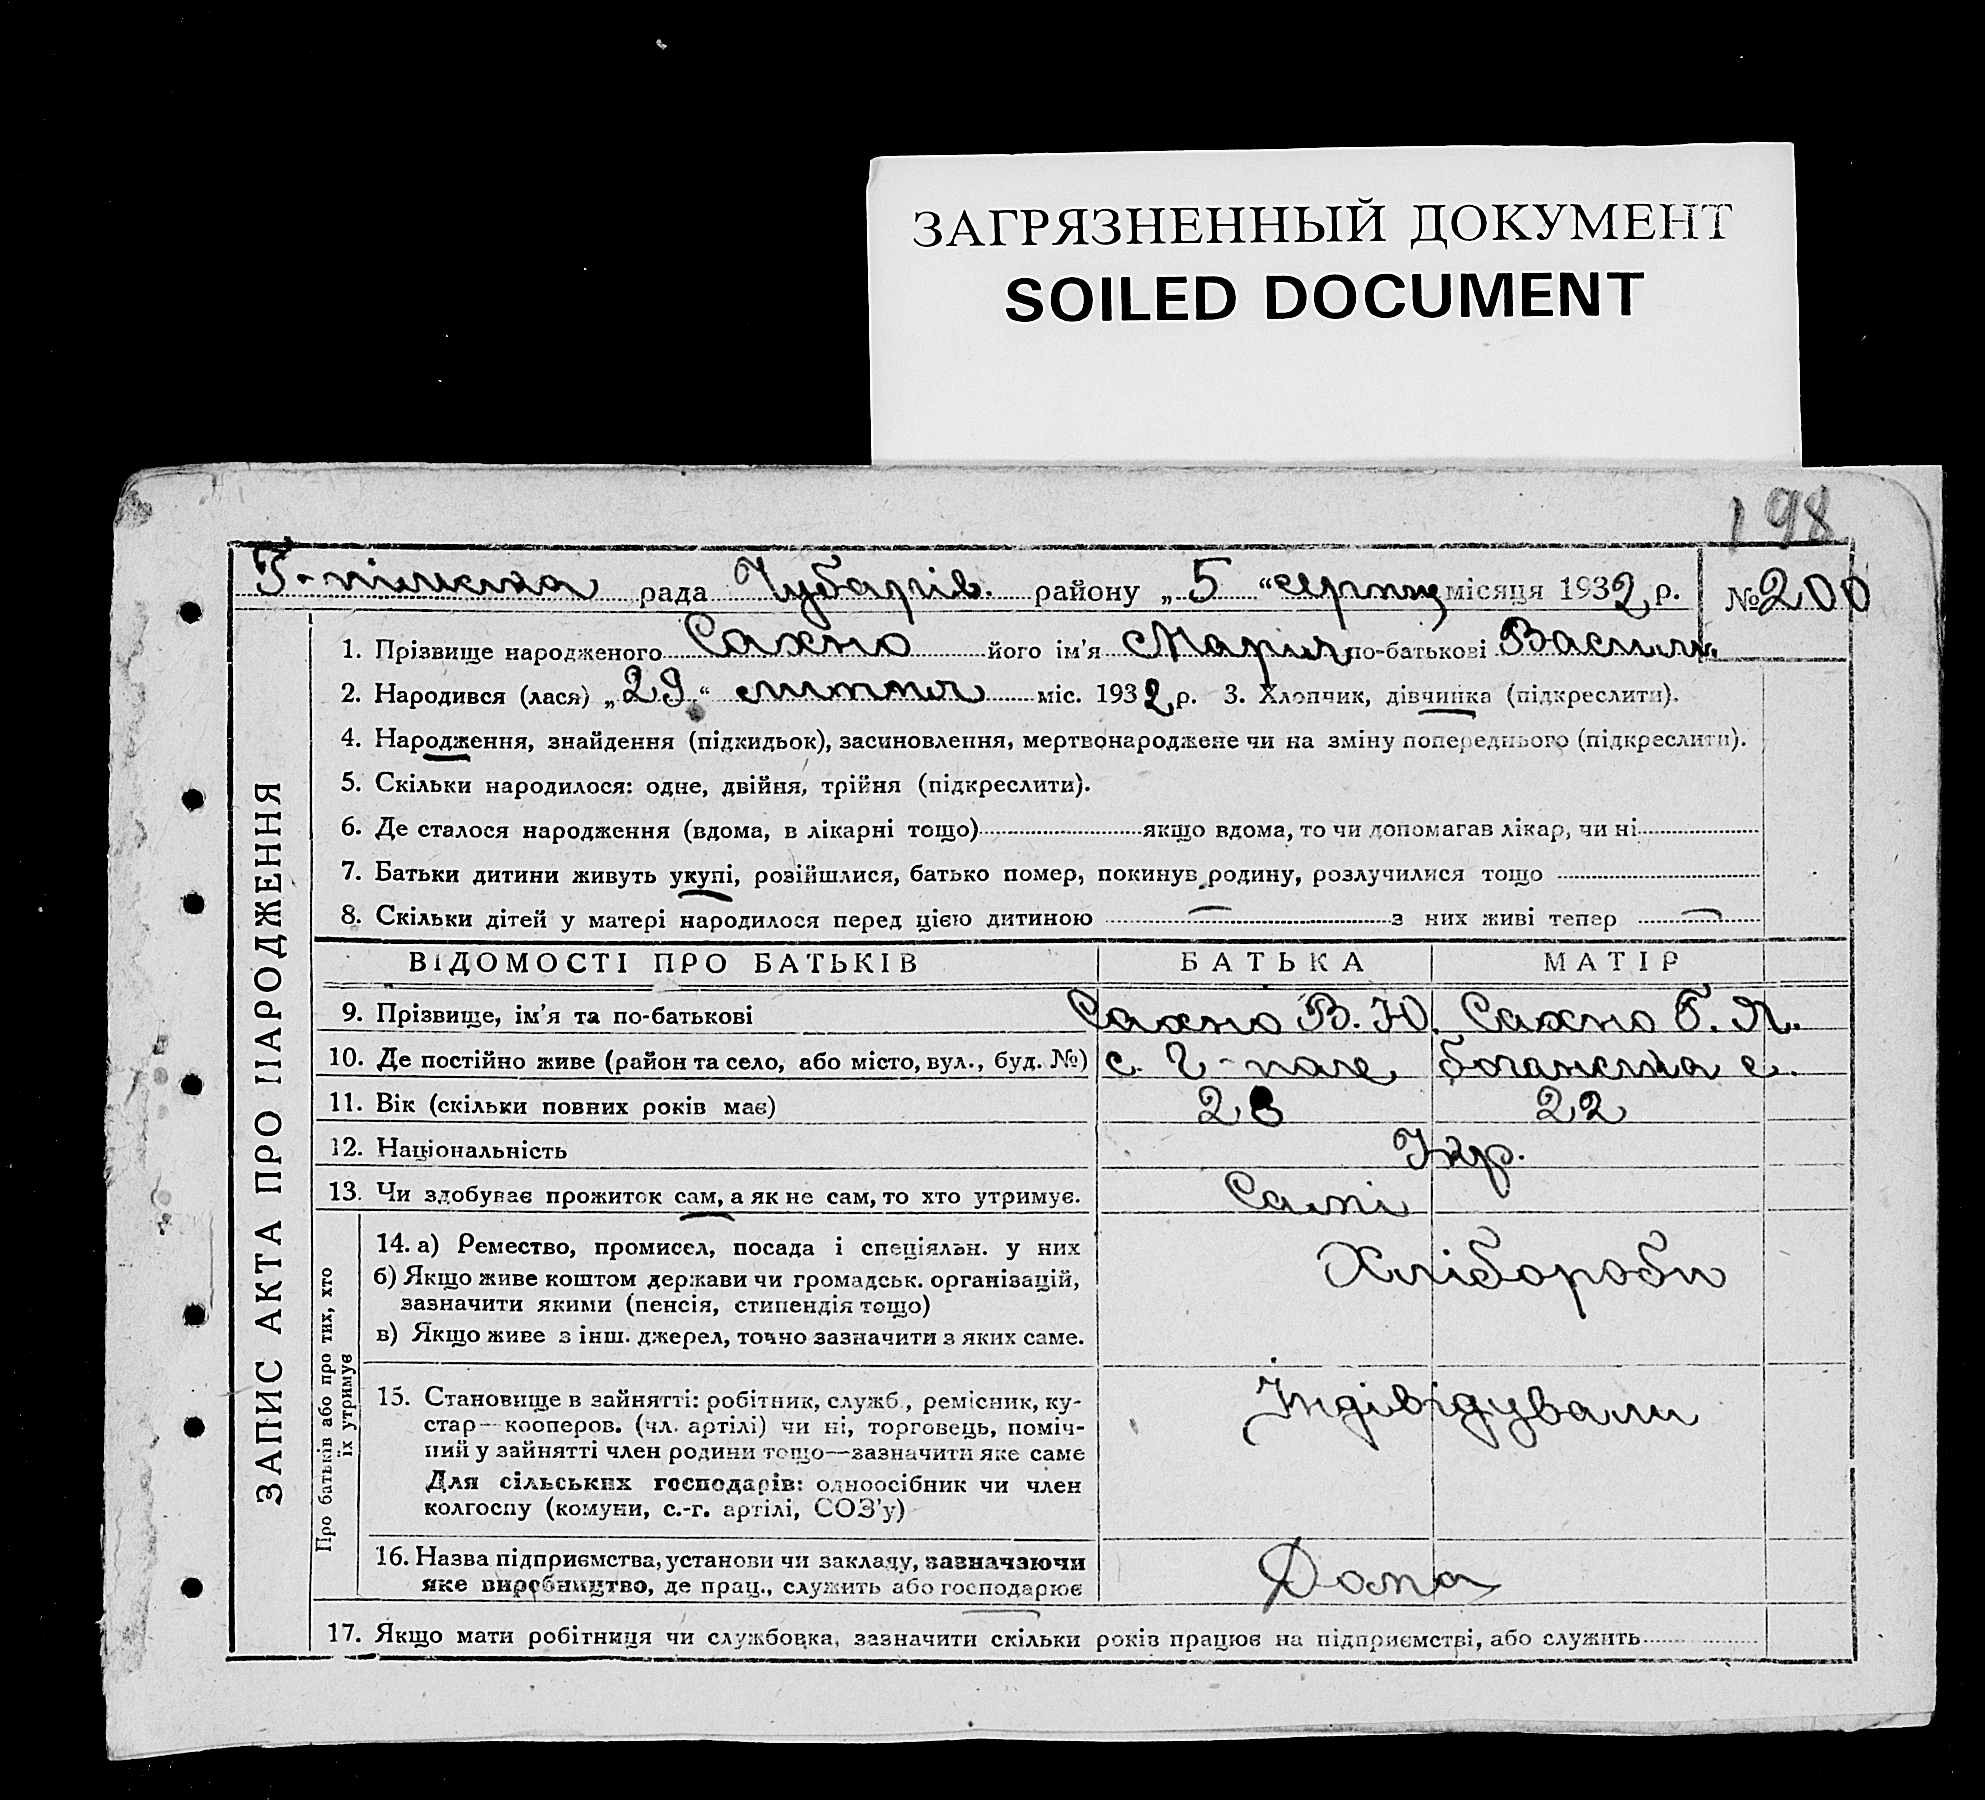 ЗАГРЯЗНЕННЫЙ ДОКУМЕНТ
SOILED DOCUMENT
198
рада Чубарів. району „5“ серпня місяця 1932 р. № 200
ЗАПИС АКТА ПРО НАРОДЖЕННЯ
1. Прізвище народженого Сахно його ім'я Марія по-батькові Васили.
2. Народився (лася) „29“ липня міс. 1932 р. 3. Хлопчик, дівчинка (підкреслити).
4. Народження, знайдення (підкидьок), засиновлення, мертвонароджене чи на зміну попереднього (підкреслити).
5. Скільки народилося: одне, двійня, трійня (підкреслити).
6. Де сталося народження (вдома, в лікарні тощо) якщо вдома, то чи допомагав лікар, чи ні
7. Батьки дитини живуть укупі, розійшлися, батько помер, покинув родину, розлучилися тощо
8. Скільки дітей у матері народилося перед цією дитиною — з них живі тепер —
ВІДОМОСТІ ПРО БАТЬКІВ БАТЬКА МАТІР
9. Прізвище, ім'я та по-батькові Сахно В. Ю. Сахно Г. Я.
10. Де постійно живе (район та село, або місто, вул., буд. №) с. Г-поле
11. Вік (скільки повних років має) 23 22
12. Національність Укр.
13. Чи здобуває прожиток сам, а як не сам, то хто утримує. Самі
Про батьків або про тих, хто
їх утримує
14. а) Ремество, промисел, посада і спеціяльн. у них Хлібороби
б) Якщо живе коштом держави чи громадськ. організацій,
зазначити якими (пенсія, стипендія тощо)
в) Якщо живе з інш. джерел, точно зазначити з яких саме.
15. Становище в зайнятті: робітник, служб., ремісник, ку-
стар—кооперов. (чл. артілі) чи ні, торговець, поміч- Індівідували
ний у зайнятті член родини тощо—зазначити яке саме
Для сільських господарів: одноосібник чи член
колгоспу (комуни, с.-г. артілі, СОЗ'у)
16. Назва підприємства, установи чи закладу, зазначаючи
яке виробництво, де прац., служить або господарює Дома
17. Якщо мати робітниця чи службовка, зазначити скільки років працює на підприємстві, або служить